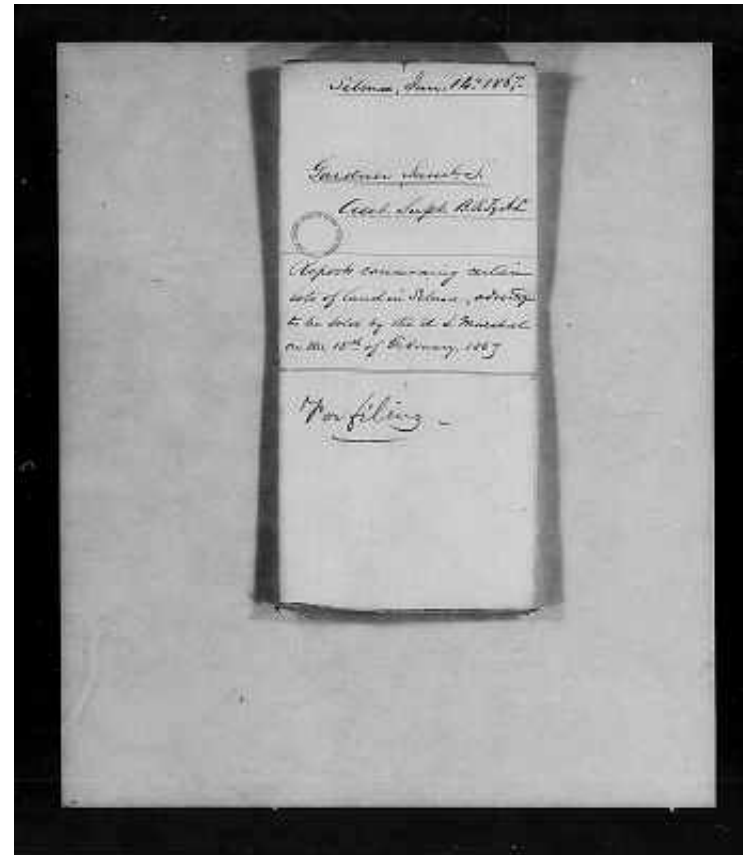 Selma, Jan. 14th 1867.
Gardner
Asst. Supt.
Reports concerning certain
lots of land in Selma,
to be sold by the U.S. Marshal
on the 15th of February, 1867
For filing